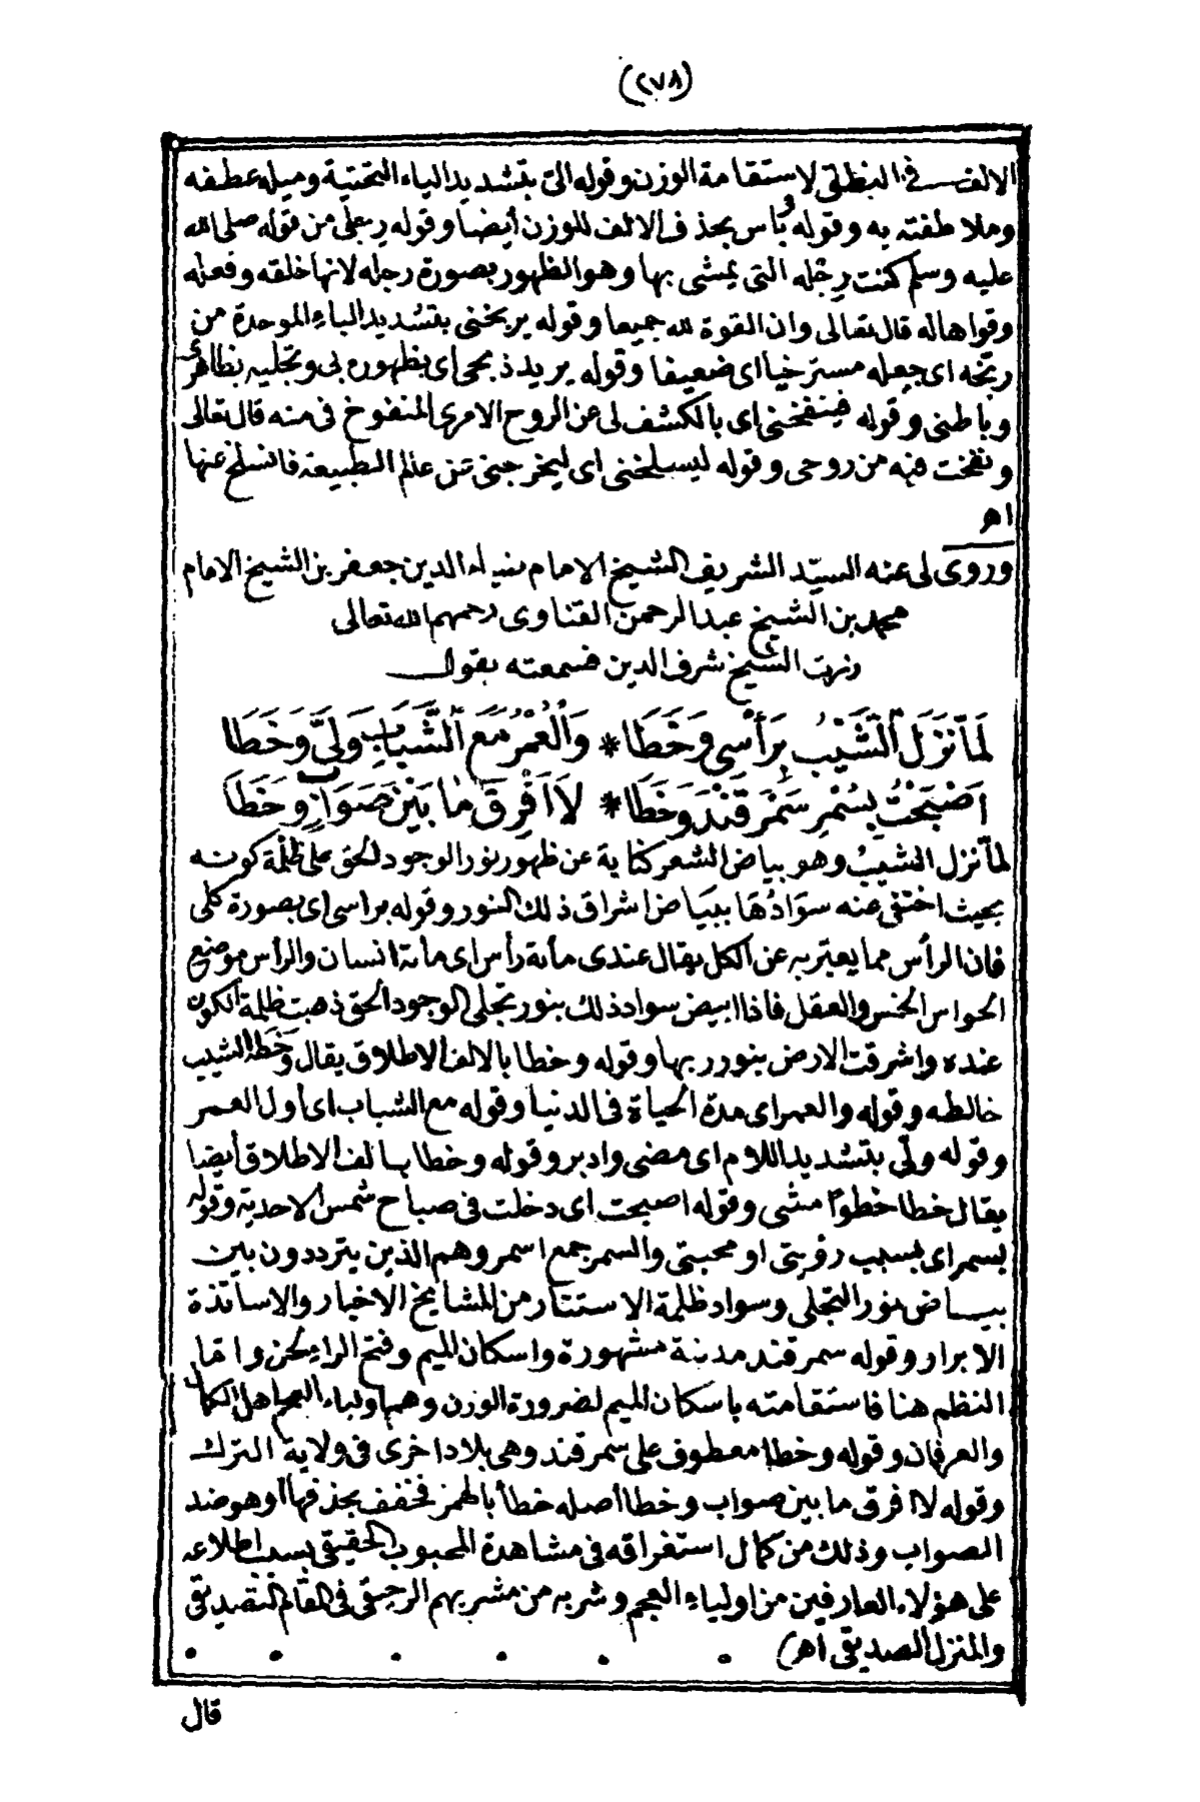 (٢٧٨)
الالف في النظلى لاستقامة الوزن وقوله الىّ بتشديد الياء التحتية وميله عطفه
وملاطفته به وقوله باس بحذف الالف للوزن أيضا وقوله رجلى من قوله صلى الله
عليه وسلم كنت رجله التى يمشى بها وهو الظهور بصورة رجله لانها خلقه وفعله
وقواها له قال تعالى وان القوة لله جميعا وقوله يربخنى بتشديد الباء الموحدة من
ربّخه اى جعله مسترخيا اى ضعيفا وقوله يريد ذبحى اى بظهوره بى وتجليه بظاهرى
وباطنى وقوله فينفخنى اى بالكشف لى عن الروح الامرى المنفوخ فى منه قال تعالى
ونفخت فيه من روحى وقوله ليسلخنى اى ليخرجنى عن عالم الطبيعة فانسلخ عنها
اهر
وروى لى عنه السيّد الشريف الشيخ الامام ضياء الدين جعفر بن الشيخ الامام
محمد بن الشيخ عبد الرحمن القناوى رحمهم الله تعالى
زرت الشيخ شرف الدين فسمعته يقول
لَمّا نَزَلَ الشَّيْبُ بِرَأْسِى وَخَطَا * وَالْعُمْرُ مَعَ الشَّبَابِ وَلَّىٰ وَخَطَا
اَصْبَحْتُ بِسُمْرِ سَمَرْقَنْدَ وَخَطَا * لَا اَفْرِقُ مَا بَيْنَ صَوَابٍ وَخَطَا
لمّا نزل الشيبُ وهو بياض الشعر كناية عن ظهور نور الوجود الحق على ظلمة كونه
بحيث اختفى عنه سوَادُهَا ببيَاض اشراق ذلك النور وقوله براسى اى بصورة كلى
فان الرأس مما يعبّر به عن الكل يقال عندى مأنة رأس اى مأنة انسان والرأس موضع
الحواس الخمس والعقل فاذا ابيض سواد ذلك بنور تجلى الوجود الحق ذهبت ظلمة الكون
عنده واشرقت الارض بنور ربها وقوله وخطا بالالف الاطلاق يقال وَخَطه الشيب
خالطه وقوله والعمر اى مدة الحياة فى الدنيا وقوله مع الشباب اى أول العمر
وقوله ولّى بتشديد اللام اى مضى وادبر وقوله وخطا بالف الاطلاق أيضا
يقال خطا خطوًا مشى وقوله اصبحت اى دخلت فى صباح شمس الاحدية وقوله
بسمر اى بسبب رؤيتى او محبتى والسمر جمع اسمر وهم الذين يترددون بين
بياض نور التجلى وسواد ظلمة الاستتار من المشايخ الاخيار والاساتذة
الابرار وقوله سمرقند مدينة مشهورة واسكان الميم وفتح الراء لحن وامّا
النظم هنا فاستقامته باسكان الميم لضرورة الوزن وهم اولياء العجم اهل الكمال
والعرفان وقوله وخطا معطوف على سمرقند وهى بلاد اخرى فى ولاية الترك
وقوله لا افرق ما بين صواب وخطا أصله خطأ بالهمز فخفف بحذفها وهو ضد
الصواب وذلك من كمال استغراقه فى مشاهدة المحبوب الحقيقى بسبب اطلاعه
على هؤلاء العارفين من اولياء العجم وشربه من مشربهم الرحيقى فى المقام التصديقى
والمنزل الصديقى اهر)
قال